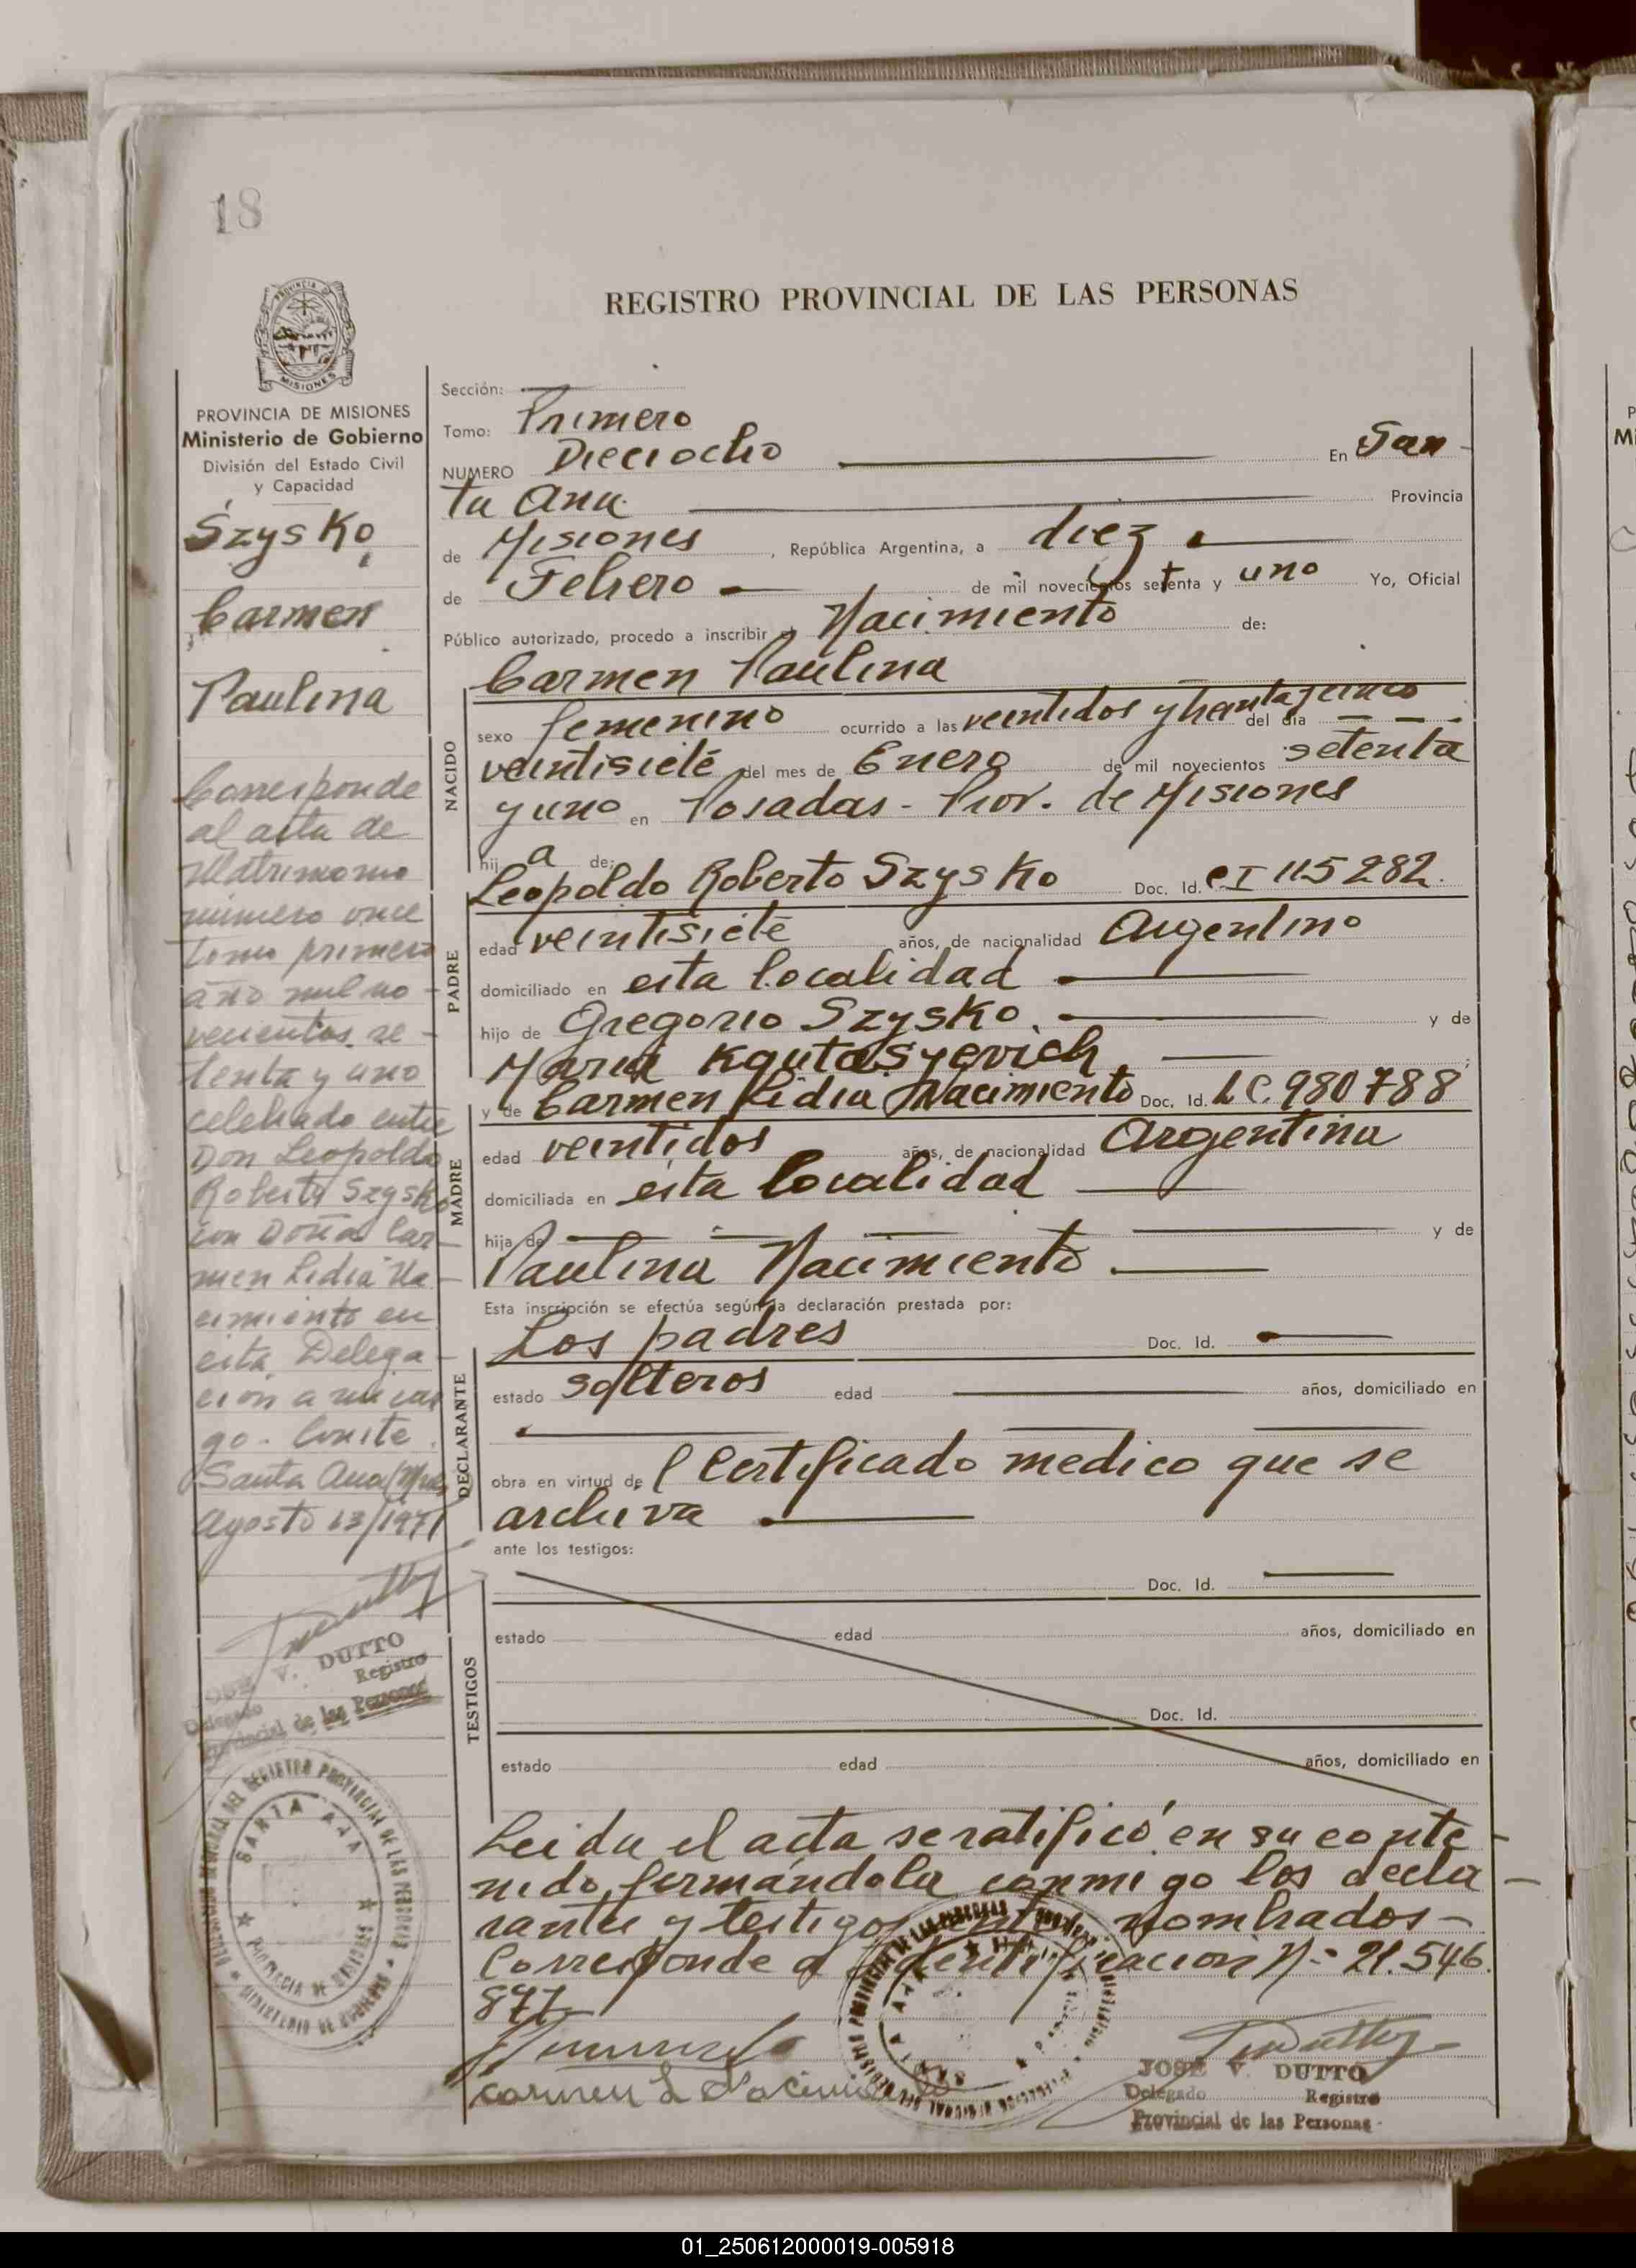 18
REGISTRO PROVINCIAL DE LAS PERSONAS
PROVINCIA DE MISIONES
Ministerio de Gobierno
División del Estado Civil
y Capacidad
Szysko
Carmen
Paulina
Corresponde
al acta de
Matrimonio
número once
tomo primero
año mil no-
vecientos se-
tenta y uno
celebrado entre
Don Leopoldo
Roberto Szysko
con Doña Car-
men Lidia Na-
cimiento en
esta Delega-
ción a mi car
go. Conste
Santa Ana (Mnes
Agosto 13/1971
JOSE V. DUTTO
Delegado Registro
Provincial de las Personas
SANTA ANA
PROVINCIA DE MISIONES
Sección:
Tomo: Primero
NUMERO Dieciocho En San-
ta Ana Provincia
de Misiones, República Argentina, a diez
de Febrero de mil novecientos setenta y uno Yo, Oficial
Público autorizado, procedo a inscribir el Nacimiento de:
Carmen Paulina
NACIDO
sexo femenino ocurrido a las veintidos y treinta y cinco del día
veintisiete del mes de Enero de mil novecientos setenta
y uno en Posadas - Prov. de Misiones
hij a de:
PADRE
Leopoldo Roberto Szysko Doc. Id. CI 115282.
edad veintisiete años, de nacionalidad Argentino
domiciliado en esta localidad
hijo de Gregorio Szysko y de
Maria Kautasyevich
MADRE
y de Carmen Lidia Nacimiento Doc. Id. LC 980788
edad veintidos años, de nacionalidad Argentina
domiciliada en esta localidad
hija de y de
Paulina Nacimiento
Esta inscripción se efectúa según la declaración prestada por:
DECLARANTE
Los padres Doc. Id.
estado solteros edad años, domiciliado en
obra en virtud de l Certificado medico que se
archiva
ante los testigos:
TESTIGOS
Doc. Id.
estado edad años, domiciliado en
Doc. Id.
estado edad años, domiciliado en
Leida el acta se ratificó en su conte-
nido, firmándola conmigo los decla-
rantes y testigos nombrados-
Corresponde a Identificacion N= 21.546.
871
Carmen L Nacimiento
JOSE V. DUTTO
Delegado Registro
Provincial de las Personas
01_250612000019-005918